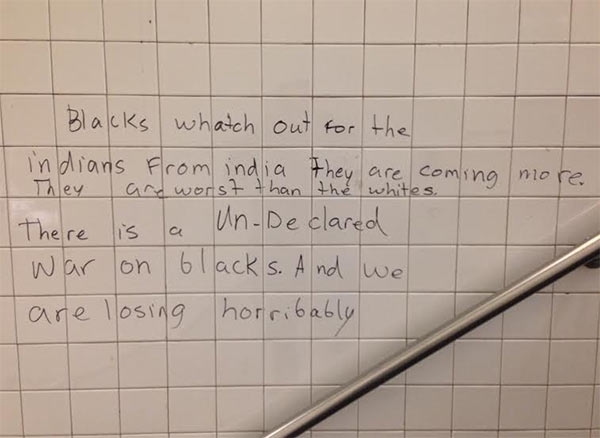 Blacks whatch out for the
indians From india They are coming more.
They are worst than the whites.
There is a Un-Declared
War on blacks. And we
are losing horribably